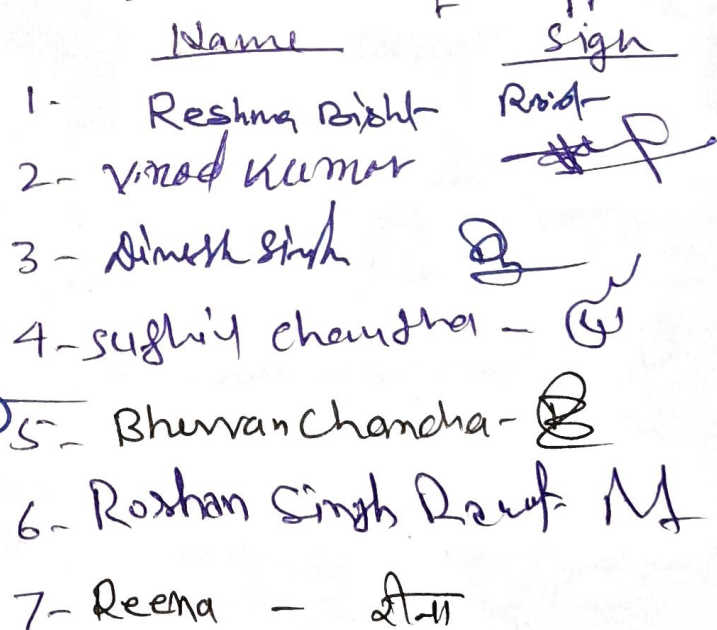 Name Sign
1- Reshma Bisht
2- Vinod Kumar
3- Dinesh Singh
4- Sushil Chandra -
5- Bhuwan Chandra -
6- Roshan Singh Rawat-
7- Reena - रीना